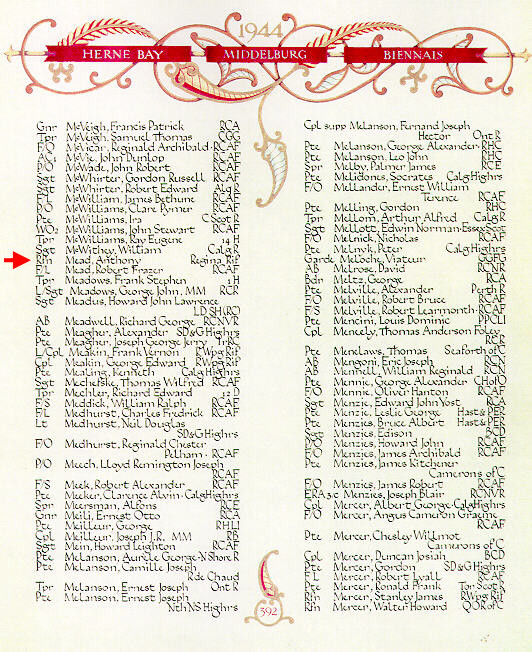 1944
HERNE BAY
MIDDELBURG
BIENNAIS
Gnr McVeigh, Francis Patrick RCA
Tpr McVeigh, Samuel Thomas CGG
F/O McVicar, Reginald Archibald · RCAF
AC1 McVie, John Dunlop RCAF
P/O McWade, John Robert RCAF
Sgt McWhirter, Gordon Russell RCAF
Sgt McWhirter, Robert Edward Alq R
F/L McWilliam, James Bethune RCAF
P/O McWilliams, Clare Pymer RCAF
Pte McWilliams, Ira C Scot R
WO2 McWilliams, John Stewart RCAF
Tpr McWilliams, Ray Eugene 14 H
Sgt McWithey, William Calg R
Rfn Mead, Anthony Regina Rif
F/L Mead, Robert Frazer RCAF
Tpr Meadows, Frank Stephen 1 H
L/Sgt Meadows, George John, MM RCR
Sgt Meadus, Howard John Lawrence
LD SH (RC)
AB Meadwell, Richard George RCNVR
Pte Meagher, Alexander SD&G Highrs
Pte Meagher, Joseph George Jerry Tr RC
L/Cpl Meakin, Frank Vernon RWpg Rif
Cpl Meakin, George Edward RWpg Rif
Pte Mealing, Kenneth Calg Highrs
Sgt Mechefske, Thomas Wilfred RCAF
Tpr Mechler, Richard Edward 12 D
F/S Meddick, William Ralph RCAF
F/L Medhurst, Charles Fredrick RCAF
Lt Medhurst, Neil Douglas
SD&G Highrs
F/O Medhurst, Reginald Chester
Pelham · RCAF
P/O Meech, Lloyd Remington Joseph
RCAF
F/S Meek, Robert Alexander RCAF
Pte Meeker, Clarence Alvin · Calg Highrs
Spr Meersman, Alfons RCE
Gnr Meili, Ernest Otto RCA
Pte Meilleur, George RHLI
Cpl Meilleur, Joseph J.R. MM RB
Sgt Mein, Howard Leighton RCAF
Pte Melanson, Aurele George · N Shore R
Pte Melanson, Camille Joseph
R de Chaud
Tpr Melanson, Ernest Joseph Ont R
Pte Melanson, Ernest Joseph
Nth NS Highrs
Cpl supp Melanson, Fernand Joseph
Hector Ont R
Pte Melanson, George Alexander RHC
Pte Melanson, Leo John RHC
Spr Melby, Palmer James RCE
Pte Melidonis, Socrates Calg Highrs
F/O Mellander, Ernest William
Terence RCAF
Pte Melling, Gordon RHC
Tpr Mellom, Arthur Alfred Calg R
Sgt Mellott, Edwin Norman · Essex Scot
F/O Melnick, Nicholas RCAF
Pte Melnyk, Peter Calg Highrs
Garde Meloche, Viateur GGFG
AB Melrose, David RCNR
Bdn Meltz, George RCA
Pte Melville, Alexander Perth R
F/O Melville, Robert Bruce RCAF
F/S Melville, Robert Learmonth · RCAF
Pte Mencini, Louis Dominic PPCLI
Cpl Menely, Thomas Anderson Foley
RCR
Pte Menelaws, Thomas Seaforth of C
AB Mengoni, Eric Joseph
AB Mennell, William Reginald RCN
Pte Mennie, George Alexander CH of O
F/O Mennie, Oliver Hanton RCAF
Sgt Menzie, Edward John Yost RCA
Pte Menzie, Leslie George Hast & PER
Pte Menzies, Bruce Albert Hast & PER
Sgt Menzies, Edison BCD
P/O Menzies, Howard John RCAF
F/O Menzies, James Archibald RCAF
Pte Menzies, James Kitchener
Camerons of C
F/O Menzies, James Robert RCAF
ERA3c Menzies, Joseph Blair RCNVR
Cpl Mercer, Albert George · Calg Highrs
F/O Mercer, Angus Cameron Graeme
RCAF
Pte Mercer, Chesley Willmot
Camerons of C
Cpl Mercer, Duncan Josiah BCD
Pte Mercer, Gordon SD&G Highrs
F/L Mercer, Robert Lyall RCAF
Pte Mercer, Ronald Frank Tor Scot R
Rfn Mercer, Stanley James RWpg Rif
Rfn Mercer, Walter Howard QOR of C
392